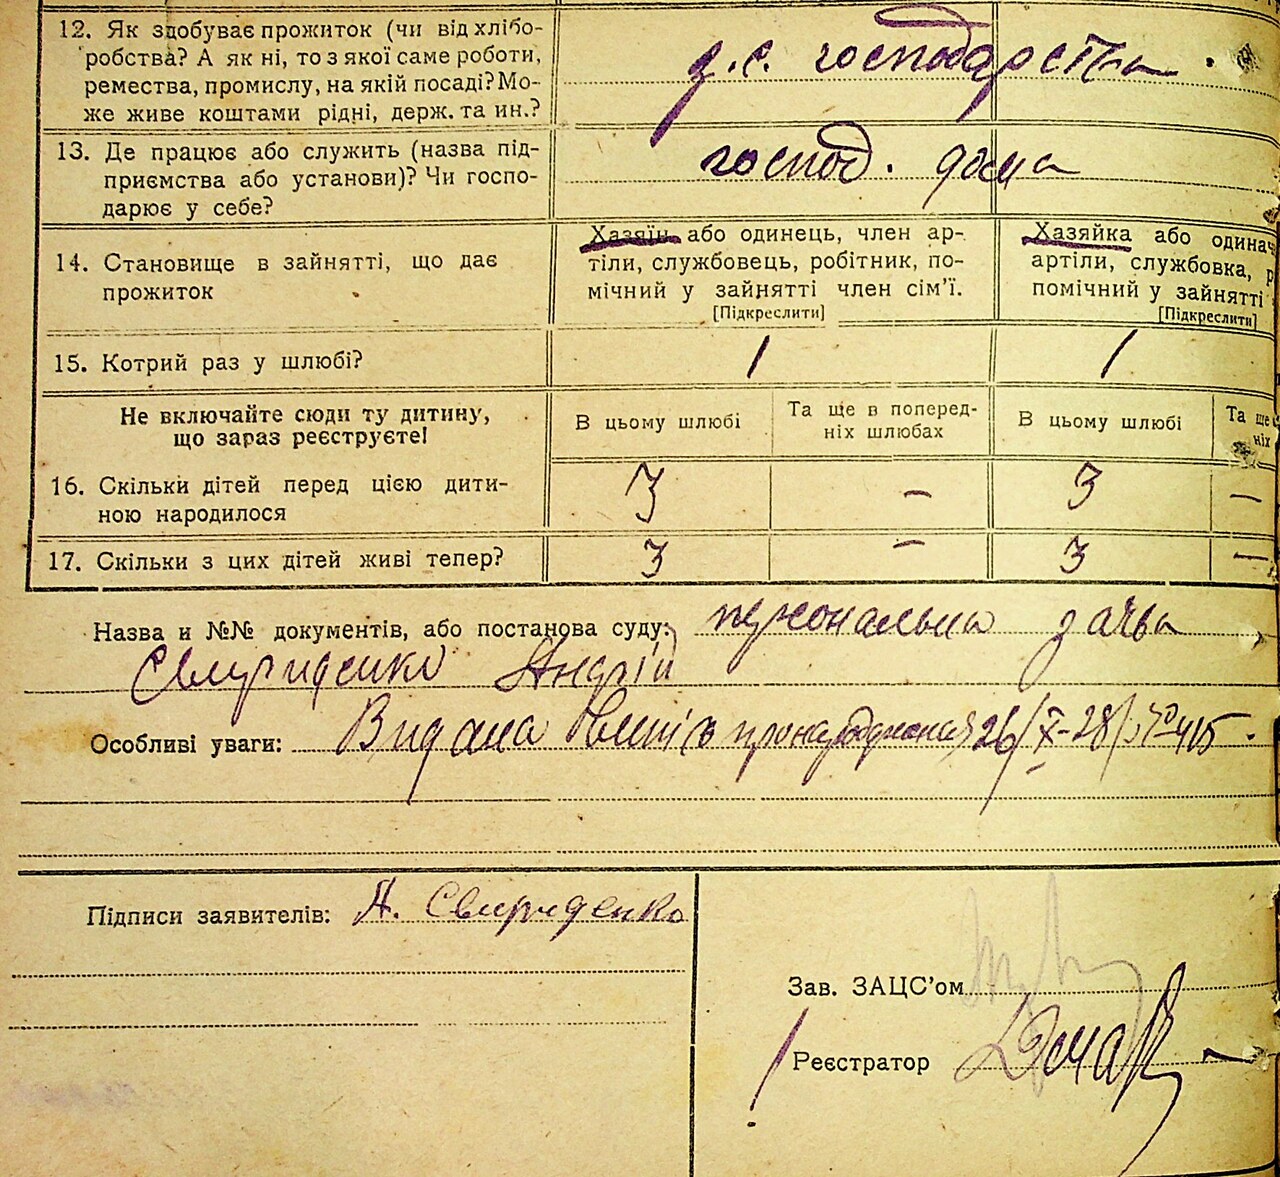 12. Як здобуває прожиток (чи від хлібо-
робства? А як ні, то з якої саме роботи,
ремества, промислу, на якій посаді? Мо-
же живе коштами рідні, держ. та ин.?
з. с. господарства
13. Де працює або служить (назва під-
приємства або установи)? Чи госпо-
дарює у себе?
господ. дома
14. Становище в зайнятті, що дає
прожиток
Хазяїн або одинець, член ар-
тіли, службовець, робітник, по-
мічний у зайнятті член сім’ї.
[Підкреслити]
Хазяйка або одинач
артіли, службовка, р
помічний у зайнятті
[Підкреслити]
15. Котрий раз у шлюбі?
1
1
Не включайте сюди ту дитину,
що зараз реєструєте!
В цьому шлюбі
Та ще в поперед-
ніх шлюбах
В цьому шлюбі
Та ще
ніх
16. Скільки дітей перед цією дити-
ною народилося
3 – 3 –
17. Скільки з цих дітей живі тепер?
3 – 3 –
Назва и №№ документів, або постанова суду: персональна заява
Свириденко Андрій
Особливі уваги: Видана 26/X-28
Підписи заявителів: А. Свириденко
Зав. ЗАЦС’ом
Реєстратор